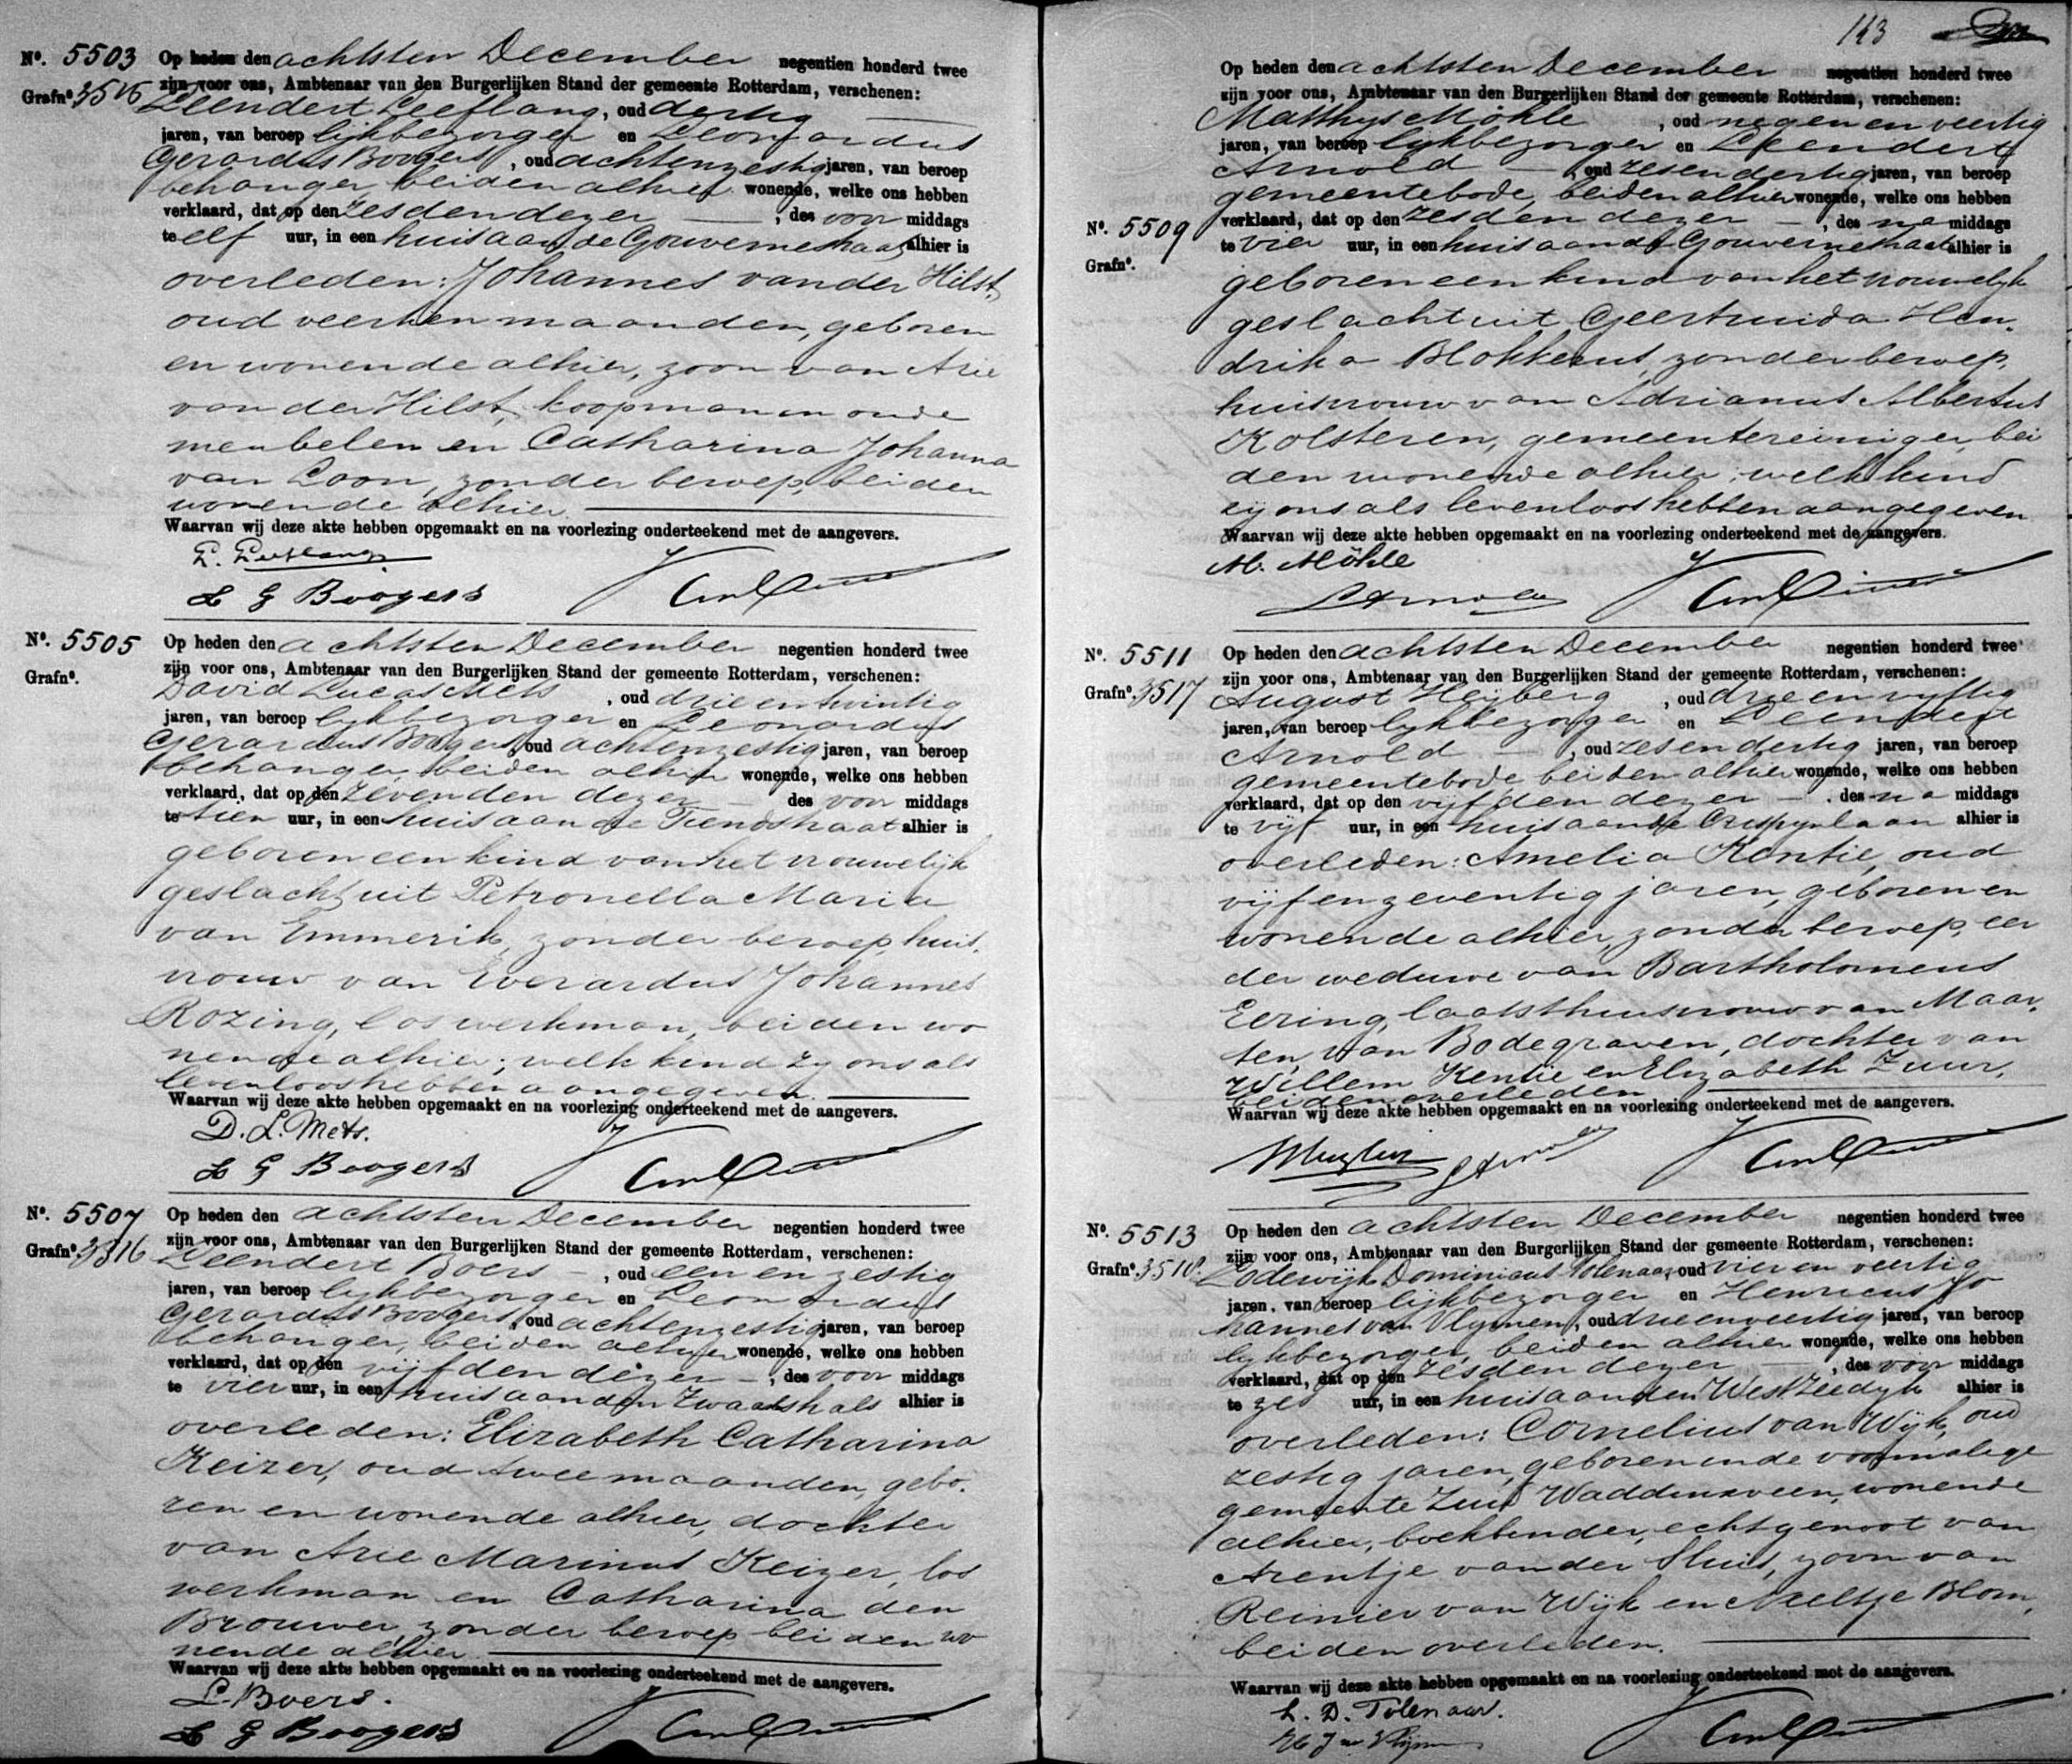 Nº. 5503 Op heden den achtsten December negentien honderd twee
Grafnº. 3515 zijn voor ons, Ambtenaar van den Burgerlijken Stand der gemeente Rotterdam, verschenen:
Leendert Leeflang, oud dertig
jaren, van beroep lijkbezorger en Leonardus
Gerardus Boogers, oud achtenzestig jaren, van beroep
behanger, beiden alhier wonende, welke ons hebben
verklaard, dat op den zesden dezer, des voor middags
te elf uur, in een huis aan de Gouvernestraat alhier is
overleden: Johannes van der Hilst,
oud veertien maanden, geboren
en wonende alhier, zoon van Arie
van der Hilst, koopman in oude
meubelen en Catharina Johanna
van Loon, zonder beroep, beiden
wonende alhier.
Waarvan wij deze akte hebben opgemaakt en na voorlezing onderteekend met de aangevers.
L. Leeflang
L G Boogers
Nº. 5505 Op heden den achtsten December negentien honderd twee
Grafnº. zijn voor ons, Ambtenaar van den Burgerlijken Stand der gemeente Rotterdam, verschenen:
David Lucas Mets, oud drieentwintig
jaren, van beroep lijkbezorger en Leonardus
Gerardus Boogers, oud achtenzestig jaren, van beroep
behanger, beiden alhier wonende, welke ons hebben
verklaard, dat op den zevenden dezer des voor middags
te tien uur, in een huis aan de Tiendstraat alhier is
geboren een kind van het vrouwelijk
geslacht uit Petronella Maria
van Emmerik, zonder beroep, huis-
vrouw van Everardus Johannes
Rozing, los werkman, beiden wo
nende alhier; welk kind zij ons als
levenloos hebben aangegeven.
Waarvan wij deze akte hebben opgemaakt en na voorlezing onderteekend met de aangevers.
D. L. Mets.
L G Boogers
Nº. 5507 Op heden den achtsten December negentien honderd twee
Grafnº. 3516 zijn voor ons, Ambtenaar van den Burgerlijken Stand der gemeente Rotterdam, verschenen:
Leendert Boers, oud een en zestig
jaren, van beroep lijkbezorger en Leonardus
Gerardus Boogers, oud achtenzestig jaren, van beroep
behanger, beiden alhier wonende, welke ons hebben
verklaard, dat op den vijfden dezer, des voor middags
te vier uur, in een huis aan den Zwaanshals alhier is
overleden: Elizabeth Catharina
Keizer, oud twee maanden, gebo-
ren en wonende alhier, dochter
van Arie Marinus Keizer, los
werkman en Catharina den
Brouwer, zonder beroep beiden wo
nende alhier.
Waarvan wij deze akte hebben opgemaakt en na voorlezing onderteekend met de aangevers.
L. Boers.
L G Boogers
113
Op heden den achtsten December negentien honderd twee
zijn voor ons, Ambtenaar van den Burgerlijken Stand der gemeente Rotterdam, verschenen:
Matthijs Möhle, oud negen en veertig
jaren, van beroep lijkbezorger en Leendert
Arnold, oud zesendertig jaren, van beroep
gemeentebode, beiden alhier wonende, welke ons hebben
Nº. 5509 verklaard, dat op den zesden dezer, des na middags
te vier uur, in een huis aan de Gouvernestraat alhier is
Grafnº.
geboren een kind van het vrouwelijk
geslacht uit Geertruida Hen-
drika Blokkeus, zonder beroep,
huisvrouw van Adrianus Albertus
Kolsteren, gemeentereiniger, bei
den wonende alhier; welk kind
zij ons als levenloos hebben aangegeven
Waarvan wij deze akte hebben opgemaakt en na voorlezing onderteekend met de aangevers.
M. Möhle
L Arnold
Nº. 5511 Op heden den achtsten December negentien honderd twee
Grafnº. 3517 zijn voor ons, Ambtenaar van den Burgerlijken Stand der gemeente Rotterdam, verschenen:
August Heijberg, oud drieenvijftig
jaren, van beroep lijkbezorger en Leendert
Arnold, oud zesendertig jaren, van beroep
gemeentebode, beiden alhier wonende, welke ons hebben
verklaard, dat op den vijfden dezer, des na middags
te vijf uur, in een huis aan de Crispijnlaan alhier is
overleden: Amelia Kentie, oud
vijfenzeventig jaren, geboren en
wonende alhier, zonder beroep, eer
der weduwe van Bartholomeus
Eering, laatst huisvrouw van Maar-
ten van Bodegraven, dochter van
Willem Kentie en Elizabeth Zuur,
beiden overleden
Waarvan wij deze akte hebben opgemaakt en na voorlezing onderteekend met de aangevers.
L Arnold
Nº. 5513 Op heden den achtsten December negentien honderd twee
Grafnº. 3518. zijn voor ons, Ambtenaar van den Burgerlijken Stand der gemeente Rotterdam, verschenen:
Lodewijk Dominicus Tolenaar, oud vier en veertig
jaren, van beroep lijkbezorger en Henricus Jo
hannes van Vlijmen, oud drieenveertig jaren, van beroep
lijkbezorger, beiden alhier wonende, welke ons hebben
verklaard, dat op den zesden dezer, des voor middags
te zes uur, in een huis aan den Westzeedijk alhier is
overleden: Cornelius van Wijk, oud
zestig jaren, geboren in de voormalige
gemeente Zuid Waddinxveen, wonende
alhier, boekbinder, echtgenoot van
Arentje van der Sluis, zoon van
Reinier van Wijk en Neeltje Blom,
beiden overleden.
Waarvan wij deze akte hebben opgemaakt en na voorlezing onderteekend met de aangevers.
L. D. Tolenaar.
H J v Vlijmen